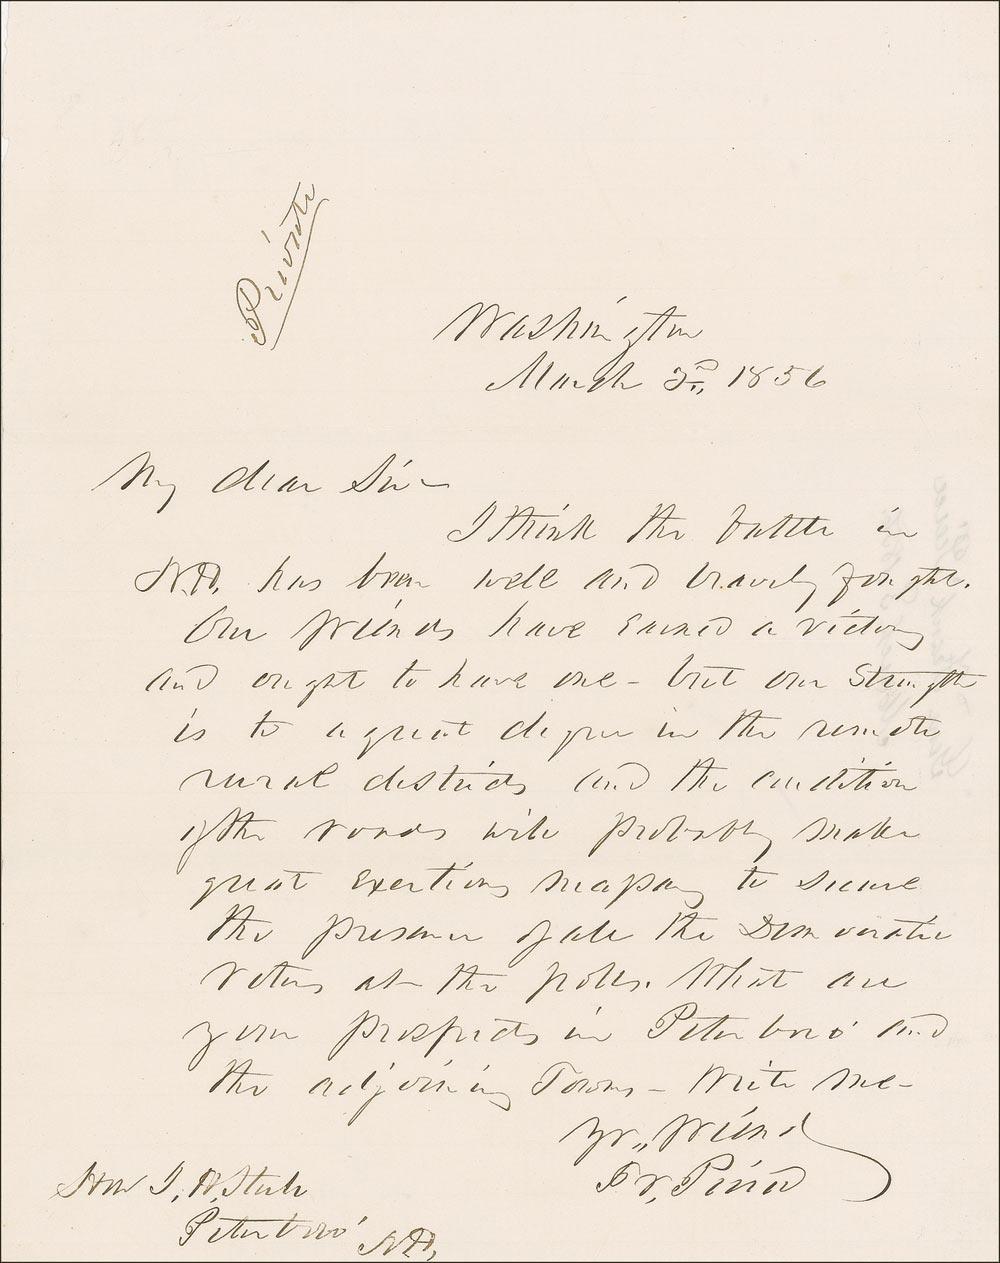 Private
Washington
March 3d, 1856
My dear Sir—
I think the battle in
N.H. has been well and bravely fought.
Our friends have earned a victory
and ought to have one - but our strength
is to a great degree in the remote
rural districts and the condition
of the roads will probably make
great exertions necessary to secure
the presence of all the Democratic
voters at the polls. What are
your prospects in Peterboro' and
the adjoining Towns - Write me-
Yr,, friend
Fr, Pierce
Hon J, H, Steele
Peterboro'
N.H,